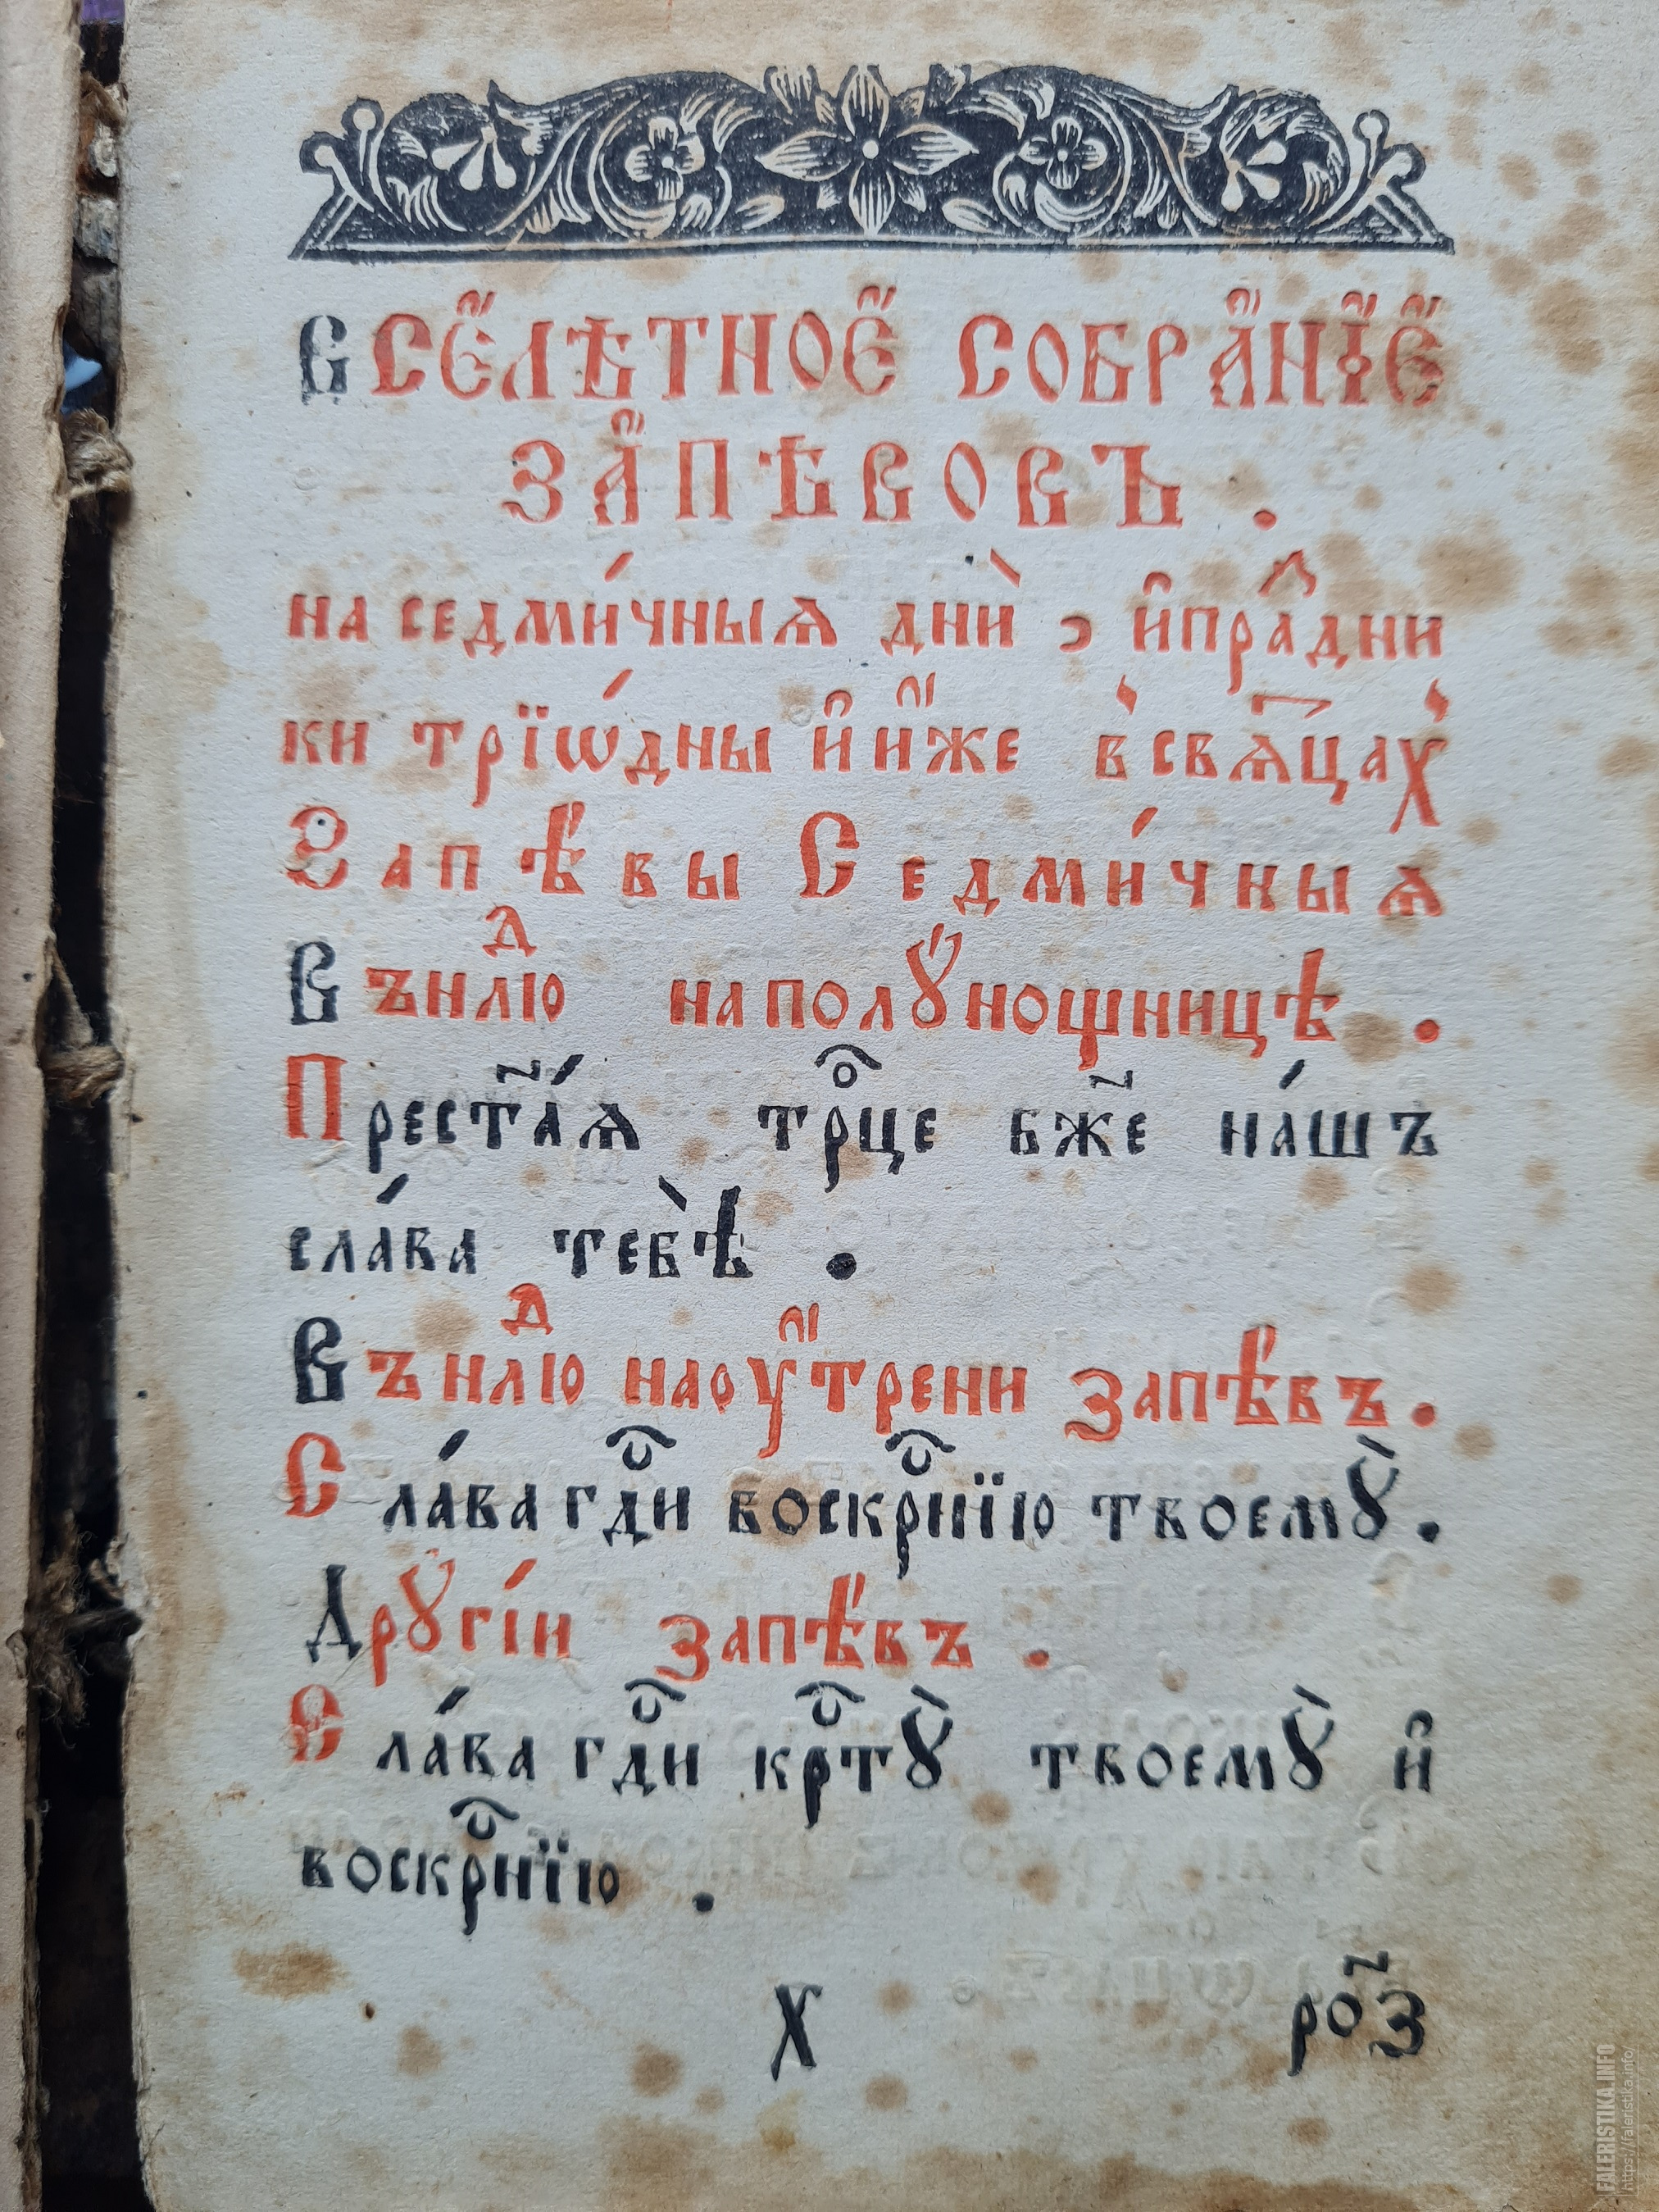 ВСЕ҆́ЛѢТНОЕ҆́ СОБРА҆́НЇ҆́Е҆́
ЗА҆́ПѢВОВЪ .
на седми́чныѧ днѝ , и҆пра́ⷥ҇дни
ки трїѡ́дны и҆ и҆́же в̾свѧ҃цах̾
Запѣ́вы Седми́чныѧ
Въ нⷣлю на полꙋ́нощницѣ .
Прест҃а́ѧ трⷪ҇це бж҃е на́шъ
сла́ва тебѣ̀ .
Въ нⷣлю на оу҆́трени запѣ́въ .
Сла́ва гдⷭ҇и воскрⷭ҇нїю твоемꙋ̀ .
Дрꙋгі́и запѣ́въ .
Сла́ва гдⷭ҇и крⷭ҇тꙋ̀ твоемꙋ̀ и҆
воскрⷭ҇нїю .
Х ро҃з
FALERISTIKA.INFO
https://faleristika.info/